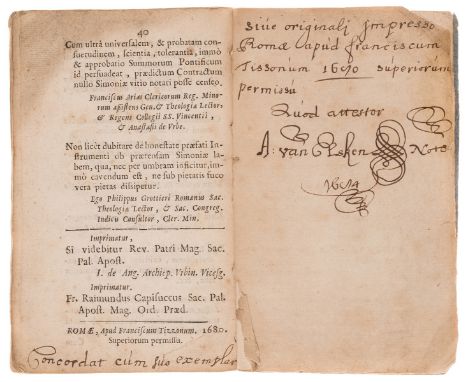 40
Cum ultrà universalem, & probatam con-
suetudinem, scientia, tolerantia, immò
& approbatio Summorum Pontificum
id persuadeat, prædictum Contractum
nullo Simoniæ vitio notari posse censeo.
Franciscus Arias Clericorum Reg. Mino-
rum
Gen. & Theologia Lector,
& Regens Collegii SS. Vincentii,
& Anastasii de Urbe.
Non licèt dubitare de honestate præfati In-
strumenti ob prætensam Simoniæ la-
bem, quæ, nec per umbram inficitur, im-
mò cavendum est, ne sub pietatis fuco
vera pietas dissipetur.
Ego Philippus Grottieri Romanus Sac.
Theologia Lector, & Sac. Congreg.
Indicu Consultor, Cler. Min.
Imprimatur,
Si videbitur Rev. Patri Mag. Sac.
Pal. Apost.
I. de Ang. Archiep. Urbin. Vicesg.
Imprimatur.
Fr. Raimundus Capisuccus Sac. Pal.
Apost. Mag. Ord. Præd.
ROMÆ, Apud Franciscum Tizzonum. 1680.
Superiorum permissu.
Concordat cum suo exemplar
sive originali Impresso
Romæ apud franciscum
Tissonum 1680 superiorum
permissu
Quod attestor
A: van Elsken Notꝰ